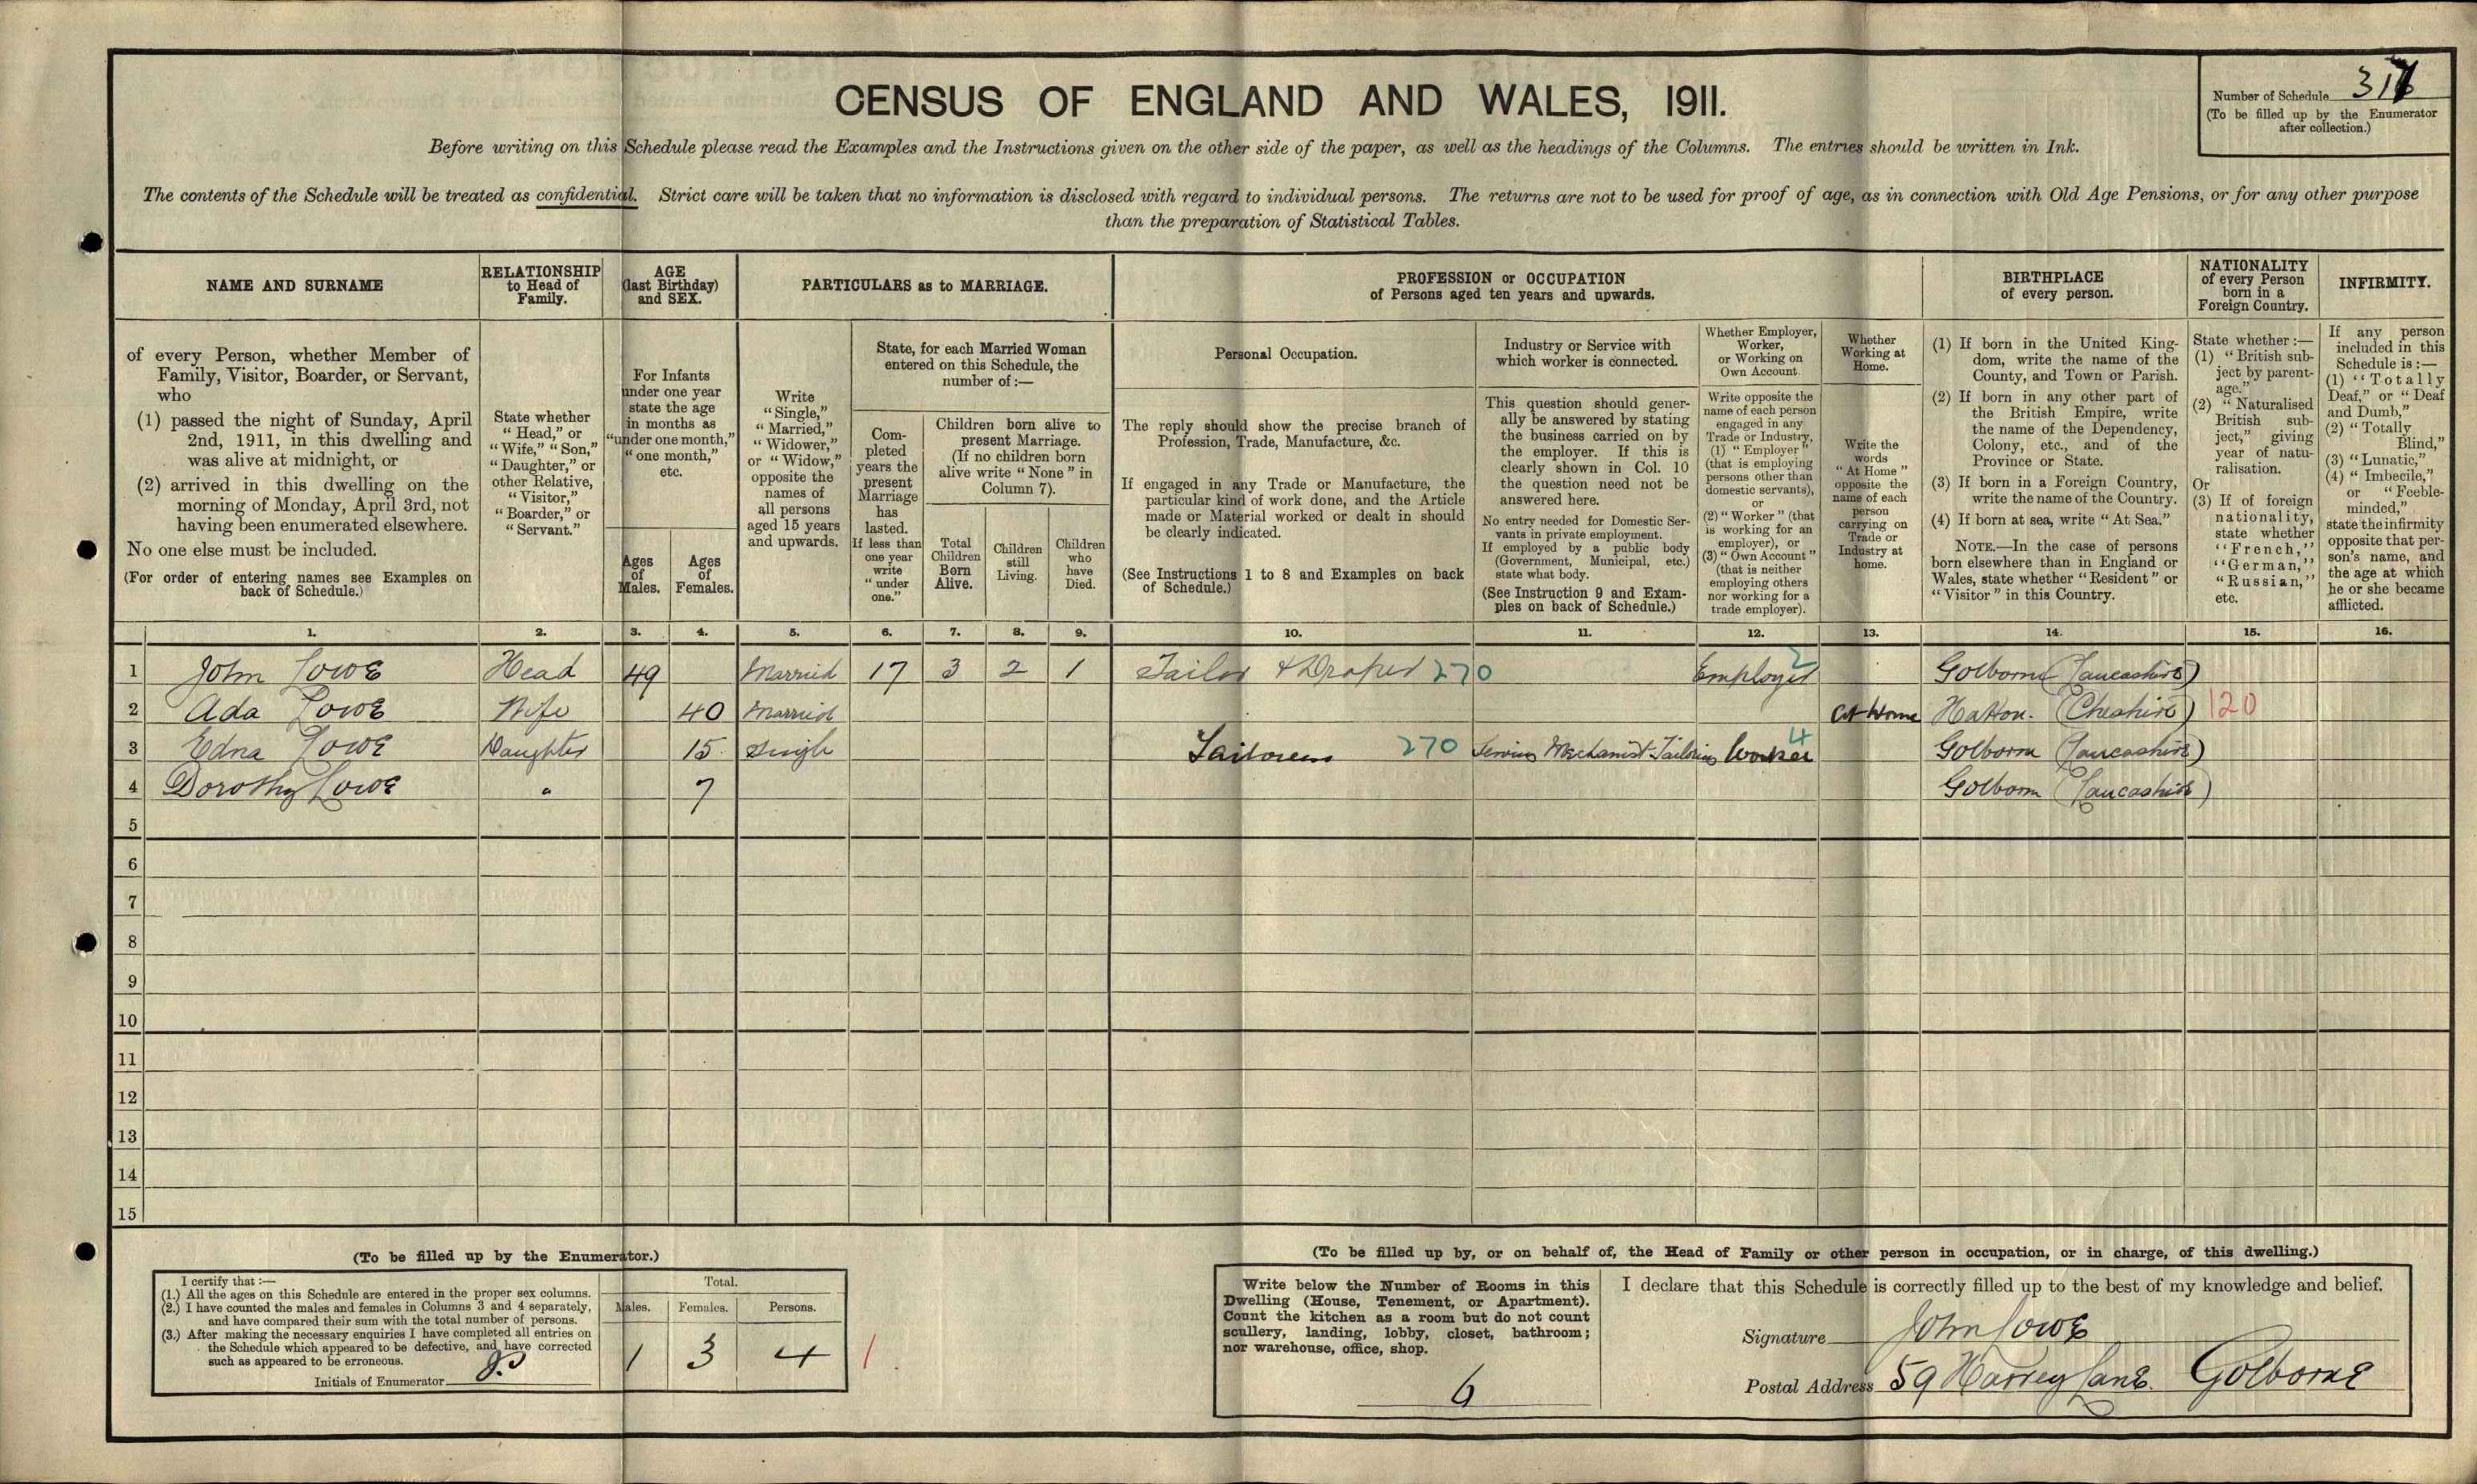 CENSUS OF ENGLAND AND WALES, 1911.
Number of Schedule
(To be filled up by the Enumerator
after collection.)
Before writing on this Schedule please read the Examples and the Instructions given on the other side of the paper, as well as the headings of the Columns. The entries should be written in Ink.
The contents of the Schedule will be treated as confidential. Strict care will be taken that no information is disclosed with regard to individual persons. The returns are not to be used for proof of age, as in connection with Old Age Pensions, or for any other purpose
than the preparation of Statistical Tables.
NAME AND SURNAME
of every Person, whether Member of
Family, Visitor, Boarder, or Servant,
who
(1) passed the night of Sunday, April
2nd, 1911, in this dwelling and
was alive at midnight, or
(2) arrived in this dwelling on the
morning of Monday, April 3rd, not
having been enumerated elsewhere.
No one else must be included.
(For order of entering names see Examples on
back of Schedule.)
RELATIONSHIP
to Head of
Family.
State whether
"Head," or
"Wife," "Son,"
"Daughter," or
other Relative,
"Visitor,"
"Boarder," or
"Servant."
AGE
(last Birthday)
and SEX.
For Infants
under one year
state the age
in months as
"under one month,"
"one month,"
etc.
Ages
of
Males.
Ages
of
Females.
PARTICULARS as to MARRIAGE.
Write
"Single,"
"Married,"
"Widower,"
or "Widow,"
opposite the
names of
all persons
aged 15 years
and upwards.
State, for each Married Woman
entered on this Schedule, the
number of:—
Com-
pleted
years the
present
Marriage
has
lasted.
If less than
one year
write
"under
one."
Children born alive to
present Marriage.
(If no children born
alive write "None" in
Column 7).
Total
Children
Born
Alive.
Children
still
Living.
Children
who
have
Died.
PROFESSION or OCCUPATION
of Persons aged ten years and upwards.
Personal Occupation.
The reply should show the precise branch of
Profession, Trade, Manufacture, &c.
If engaged in any Trade or Manufacture, the
particular kind of work done, and the Article
made or Material worked or dealt in should
be clearly indicated.
(See Instructions 1 to 8 and Examples on back
of Schedule.)
Industry or Service with
which worker is connected.
This question should gener-
ally be answered by stating
the business carried on by
the employer. If this is
clearly shown in Col. 10
the question need not be
answered here.
No entry needed for Domestic Ser-
vants in private employment.
If employed by a public body
(Government, Municipal, etc.)
state what body.
(See Instruction 9 and Exam-
ples on back of Schedule.)
Whether Employer,
Worker,
or Working on
Own Account.
Write opposite the
name of each person
engaged in any
Trade or Industry,
(1) "Employer"
(that is employing
persons other than
domestic servants),
or
(2) "Worker" (that
is working for an
employer), or
(3) "Own Account"
(that is neither
employing others
nor working for a
trade employer).
Whether
Working at
Home.
Write the
words
"At Home"
opposite the
name of each
person
carrying on
Trade or
Industry at
home.
BIRTHPLACE
of every person.
(1) If born in the United King-
dom, write the name of the
County, and Town or Parish.
(2) If born in any other part of
the British Empire, write
the name of the Dependency,
Colony, etc., and of the
Province or State.
(3) If born in a Foreign Country,
write the name of the Country.
(4) If born at sea, write "At Sea."
NOTE.—In the case of persons
born elsewhere than in England or
Wales, state whether "Resident" or
"Visitor" in this Country.
NATIONALITY
of every Person
born in a
Foreign Country.
State whether:—
(1) "British sub-
ject by parent-
age."
(2) "Naturalised
British sub-
ject," giving
year of natu-
ralisation.
Or
(3) If of foreign
nationality,
state whether
"French,"
"German,"
"Russian,"
etc.
INFIRMITY.
If any person
included in this
Schedule is:—
(1) "Totally
Deaf," or "Deaf
and Dumb,"
(2) "Totally
Blind,"
(3) "Lunatic,"
(4) "Imbecile,"
or "Feeble-
minded,"
state the infirmity
opposite that per-
son's name, and
the age at which
he or she became
afflicted.
1. 2. 3. 4. 5. 6. 7. 8. 9. 10. 11. 12. 13. 14. 15. 16.
1 John Lowe Head 49 Married 17 3 2 1 Tailor & Draper 270 Employer 2 Golborne (Lancashire)
2 Ada Lowe Wife 40 Married At Home Hatton. (Cheshire) 120
3 Edna Lowe Daughter 15 Single Tailoress 270 Sewing Mechanist Tailoring Worker 4 Golborne (Lancashire)
4 Dorothy Lowe " 7 Golborne (Lancashire)
5
6
7
8
9
10
11
12
13
14
15
(To be filled up by the Enumerator.)
I certify that:—
(1.) All the ages on this Schedule are entered in the proper sex columns.
(2.) I have counted the males and females in Columns 3 and 4 separately,
and have compared their sum with the total number of persons.
(3.) After making the necessary enquiries I have completed all entries on
the Schedule which appeared to be defective, and have corrected
such as appeared to be erroneous.
Initials of Enumerator
Total.
Males. Females. Persons.
1 3 4 1.
(To be filled up by, or on behalf of, the Head of Family or other person in occupation, or in charge, of this dwelling.)
Write below the Number of Rooms in this
Dwelling (House, Tenement, or Apartment).
Count the kitchen as a room but do not count
scullery, landing, lobby, closet, bathroom;
nor warehouse, office, shop.
6
I declare that this Schedule is correctly filled up to the best of my knowledge and belief.
Signature John Lowe
Postal Address 59 Harvey Lane. Golborne